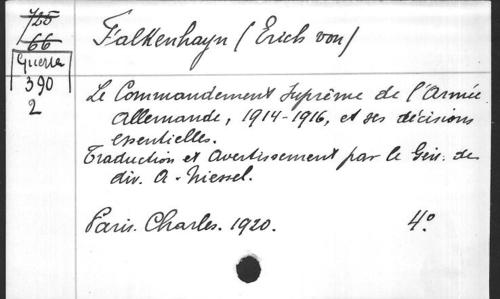 725
66
Guerra
390
2
Falkenhayn (Erich von)
Le Commandement Suprême de l'Armée
allemande, 1914-1916, et ses décisions
essentielles.
Traduction et Avertissement par le Gén. de
div. A. Niessel.
Paris. Charles. 1920. 4º